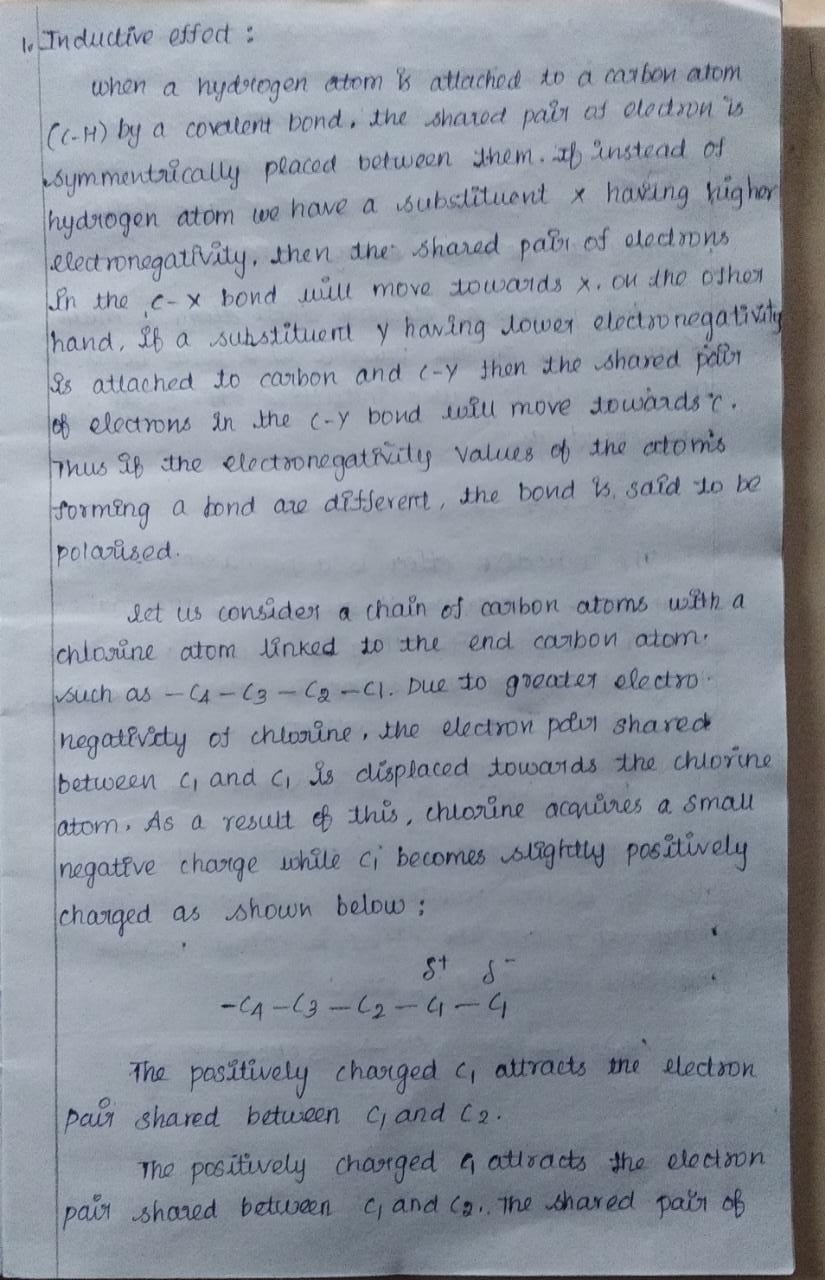 1. Inductive effect :
when a hydrogen atom is attached to a carbon atom
(C-H) by a covelent bond, the shared pair of electron is
symmentrically placed between them. If instead of
hydrogen atom we have a substituent x having higher
electronegativity, then the shared pair of electrons
In the C-X bond will move towards x. on the other
hand, If a substituent y having lower electronegativity
is attached to carbon and C-Y then the shared pair
of electrons in the C-Y bond will move towards C.
Thus if the electronegativity values of the atoms
forming a bond are different, the bond is said to be
polarised.
let us consider a chain of carbon atoms with a
chlorine atom linked to the end carbon atom.
such as -C4-C3-C2-Cl. Due to greater electro
negativity of chlorine, the electron pair shared
between C1 and Cl is displaced towards the chlorine
atom. As a result of this, chlorine acquires a small
negative charge while C1 becomes slightly positively
charged as shown below :
δ+ δ-
-C4-C3-C2-C1-Cl
The positively charged C1 attracts the electron
pair shared between C1 and C2.
The positively charged C1 attracts the electron
pair shared between C1 and C2. The shared pair of